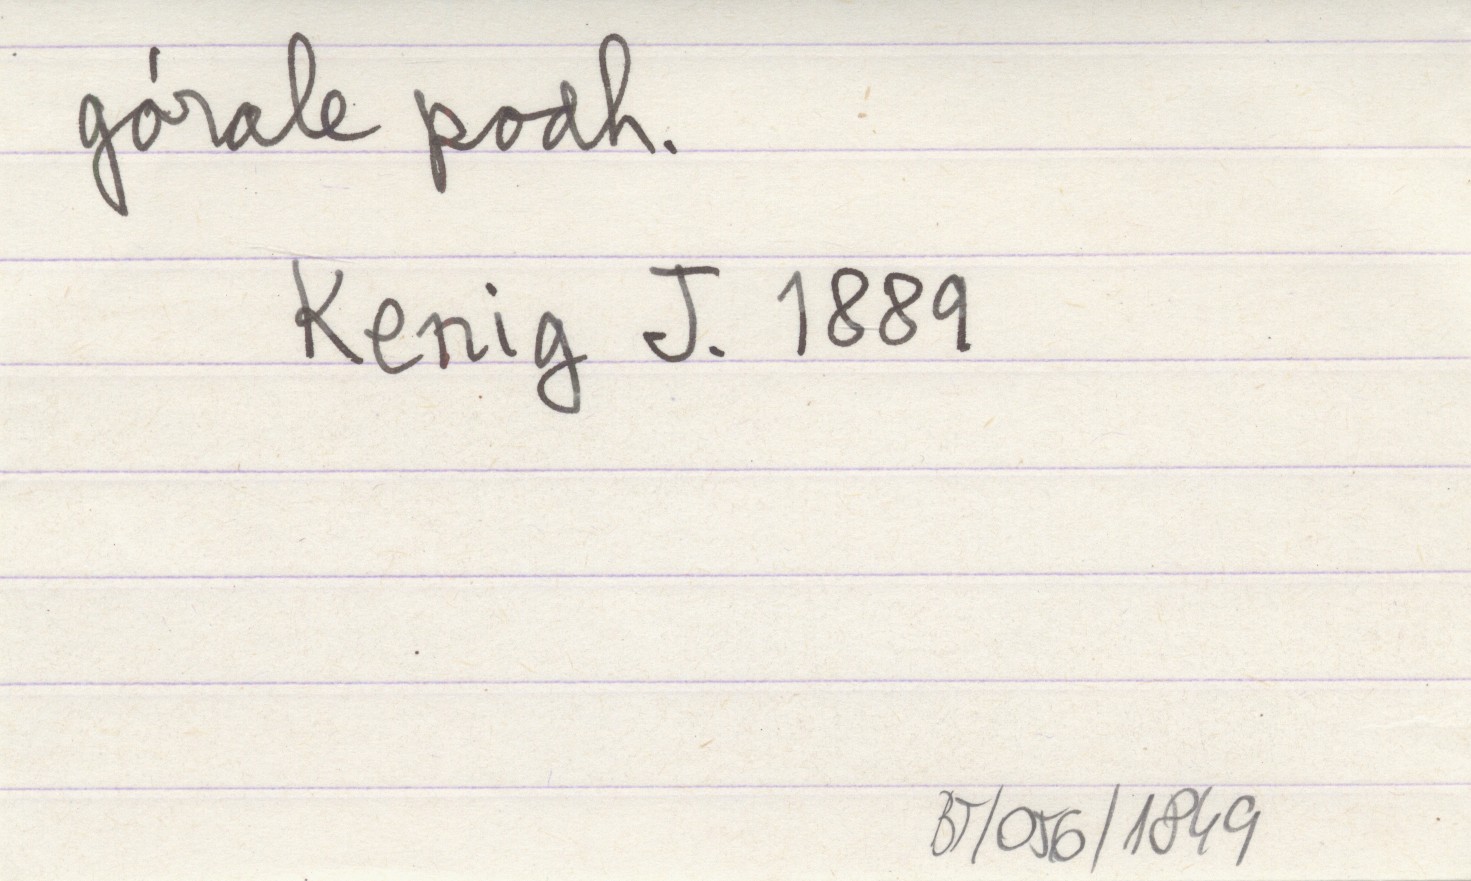 górale podh.
Kenig J. 1889
BT/056/1849